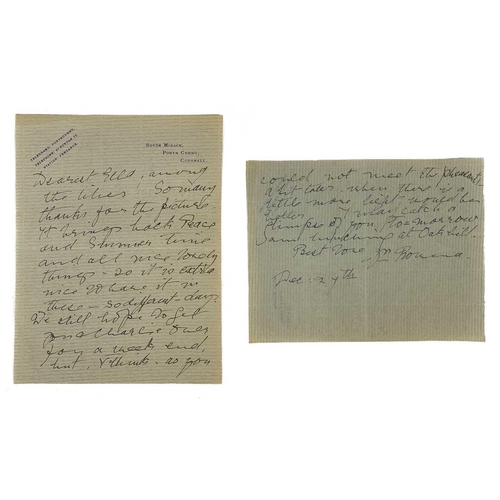 TELEGRAMS, PORTHCURNO.
STATION, PENZANCE.
SOUTH MINACK,
PORTH CURNO,
CORNWALL.
Dearest Ella, among
the lilies! So many
thanks for the picture.
It brings back Peace
and Summer time
and all nice lovely
things - so it is extra
nice to have it in
these - so different - days.
We still hope to get
Charlie over
for a week end,
but, I think - as you
could not meet the
a bit later when there is a
little more light would be
better. I may catch a
glimpse of you, tomorrow
I am lunching at Oakhill.
Best love, Rowena
Dec: 29th